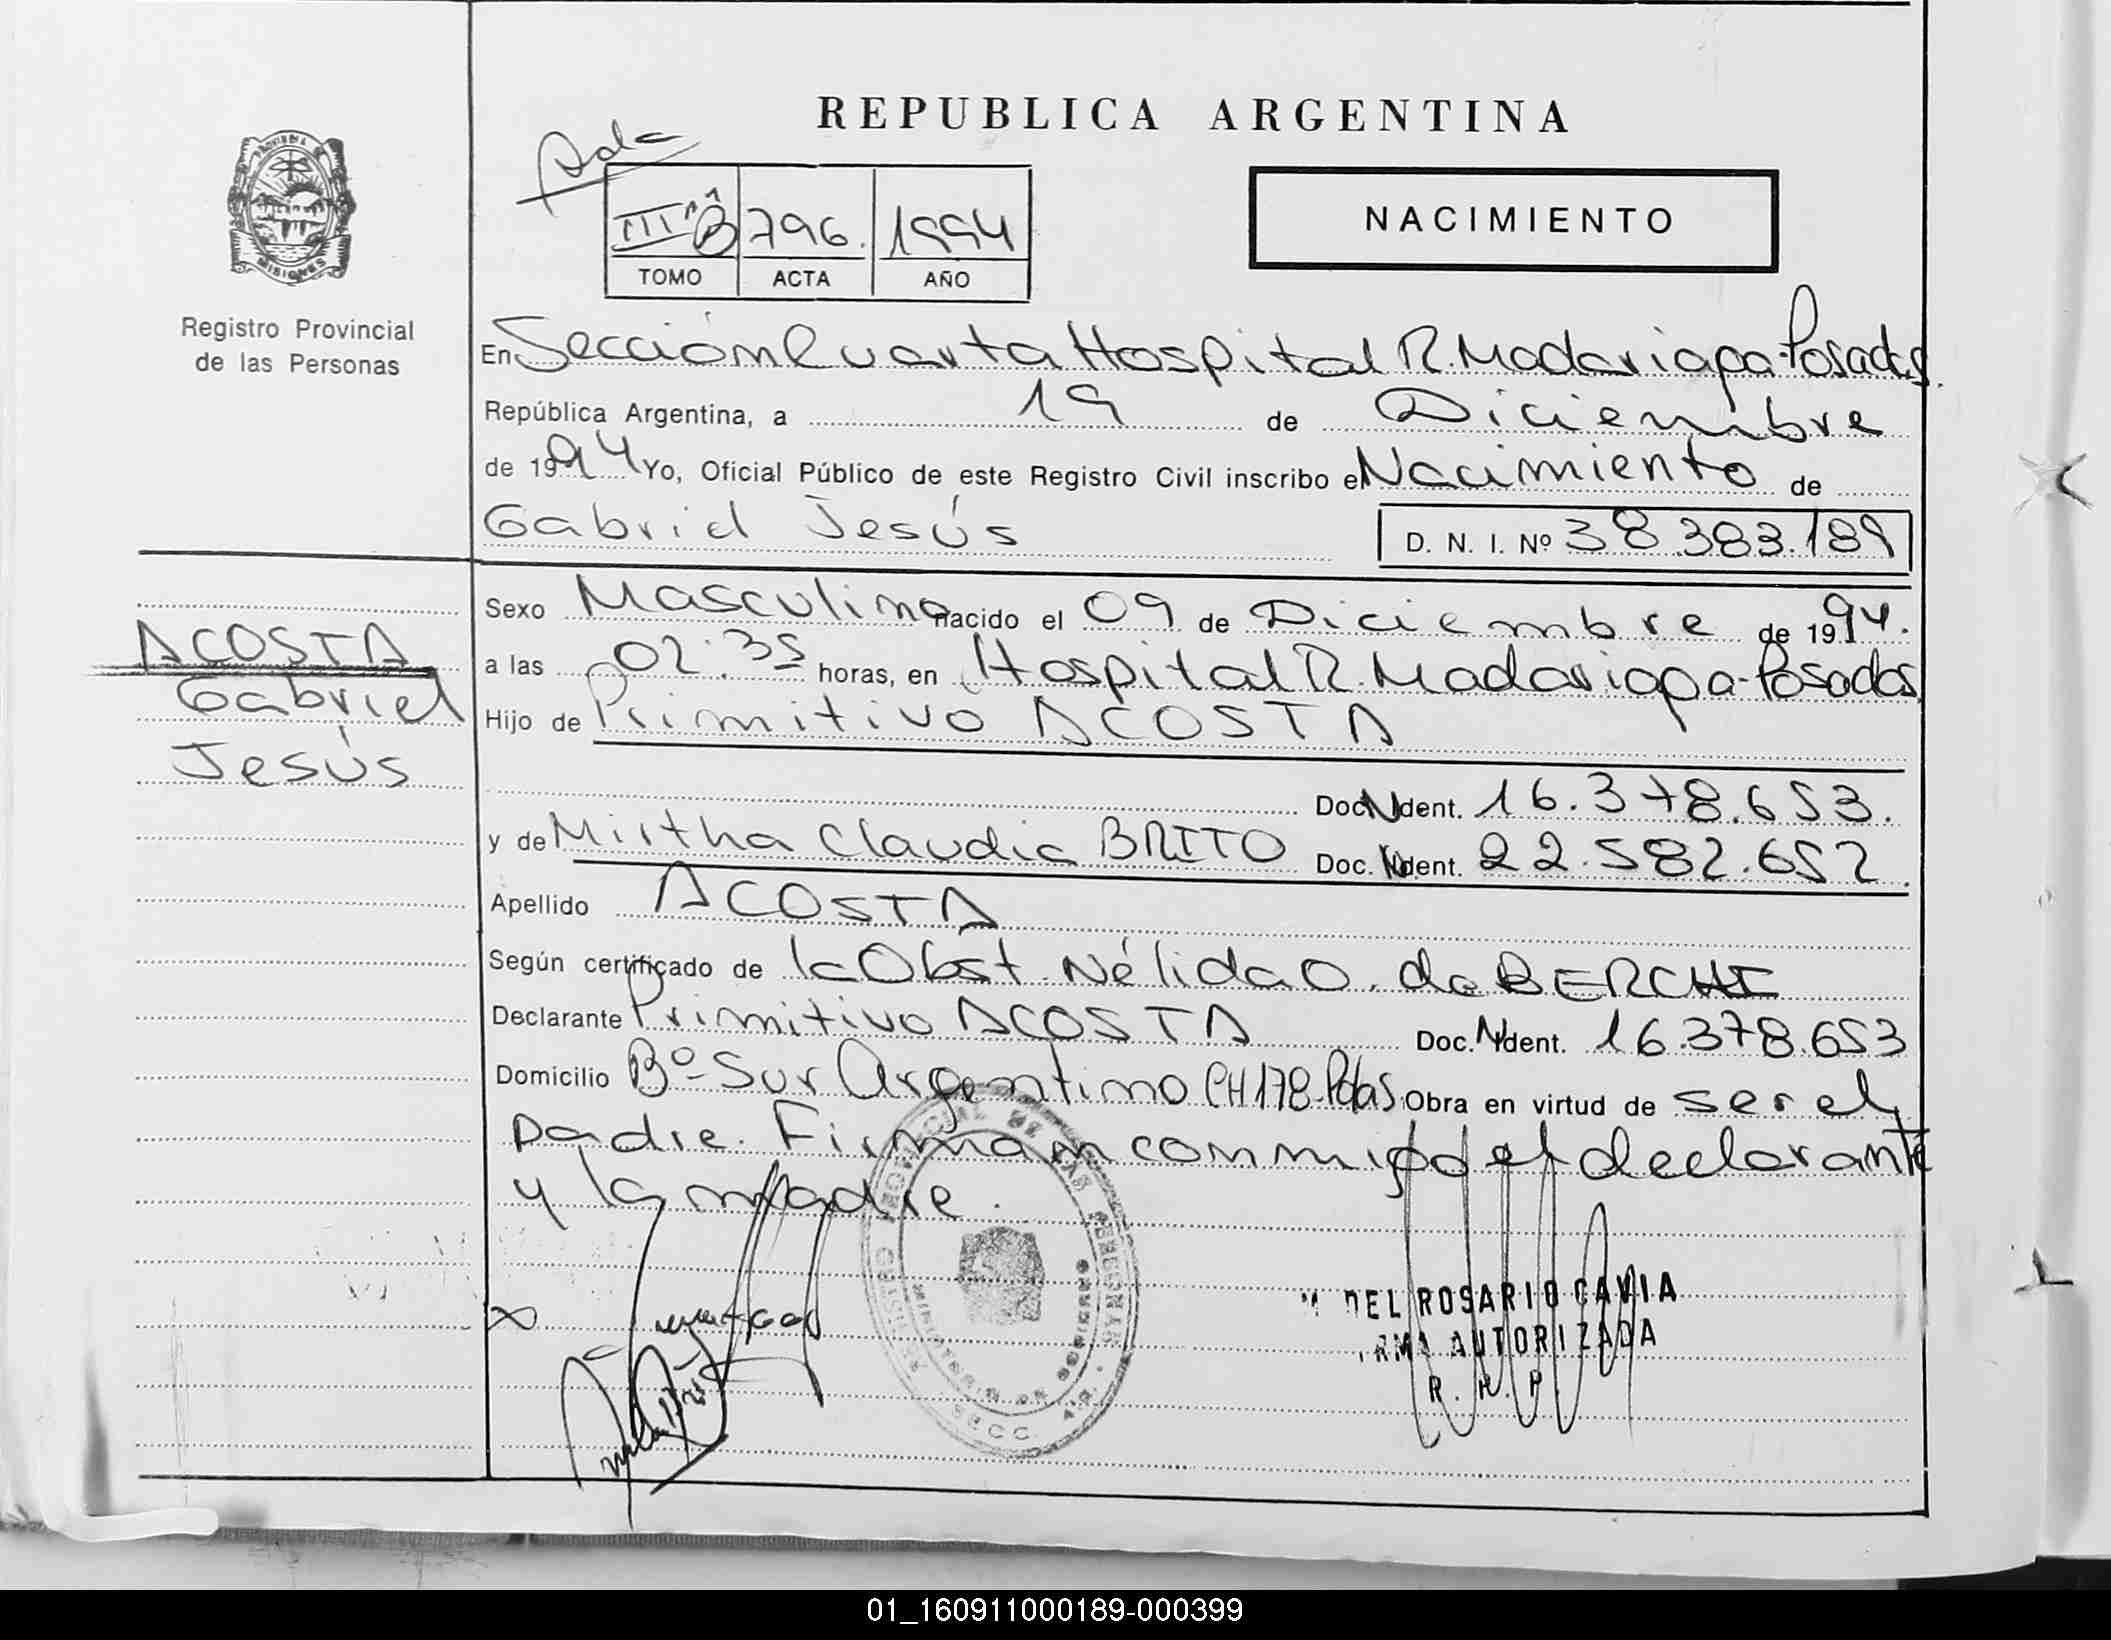 REPUBLICA ARGENTINA
III "B" 796. 1994
TOMO ACTA AÑO
NACIMIENTO
PROVINCIA DE MISIONES
Registro Provincial
de las Personas
En Sección Cuarta Hospital R. Madariaga-Posadas.
República Argentina, a 19 de Diciembre
de 1994 Yo, Oficial Público de este Registro Civil inscribo el Nacimiento de
Gabriel Jesús D. N. I. Nº 38.383.189
Sexo Masculino nacido el 09 de Diciembre de 1994.
a las 02:35 horas, en Hospital R. Madariaga-Posadas
Hijo de Primitivo ACOSTA
Doc. Ident. 16.378.653.
y de Mirtha Claudia BRITO Doc. Ident. 22.582.652.
Apellido ACOSTA
Según certificado de la Obst. Nélida O. de BERCHI
Declarante Primitivo ACOSTA Doc. Ident. 16.378.653
Domicilio Bº Sur Argentino CH 178-Pdas. Obra en virtud de ser el
padre. Firman conmigo el declarante
y la madre.
ACOSTA
Gabriel
Jesús
REGISTRO PROVINCIAL DE LAS PERSONAS
MINISTERIO DE GOBIERNO
M. DEL ROSARIO CAVIA
FIRMA AUTORIZADA
R. P.
01_160911000189-000399